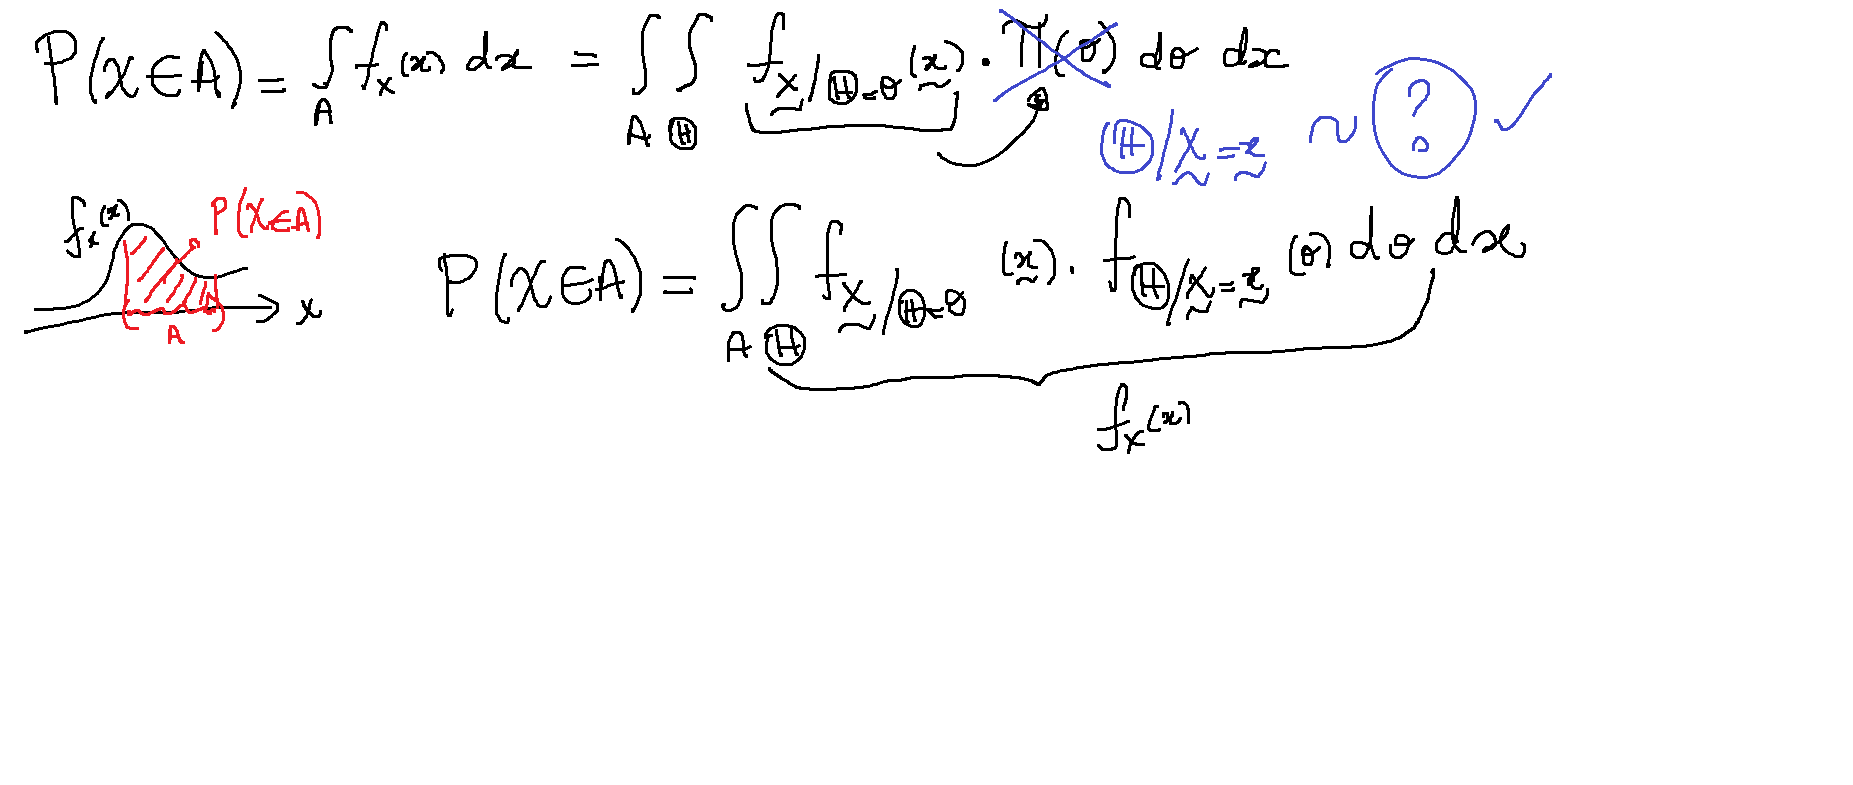 P(X∈A) = ∫_A f_X(x) dx = ∫_A ∫_Ⓗ f_X̰/Ⓗ=θ (x̰) · π(θ) dθ dx
Ⓗ/X̰=x̰ ~ ? ✓
f_X(x) P(X∈A)
x
A
P(X∈A) = ∫_A ∫_Ⓗ f_X̰/Ⓗ=θ (x̰) · f_Ⓗ/X̰=x̰ (θ) dθ dx
f_X(x)